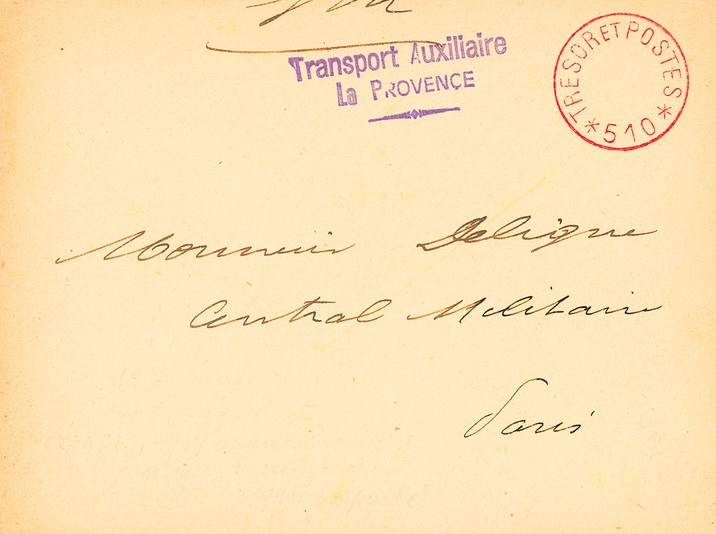 Transport Auxiliaire
La PROVENCE
TRESOR ET POSTES
* 510 *
Monsieur Deligne
Central Militaire
Paris